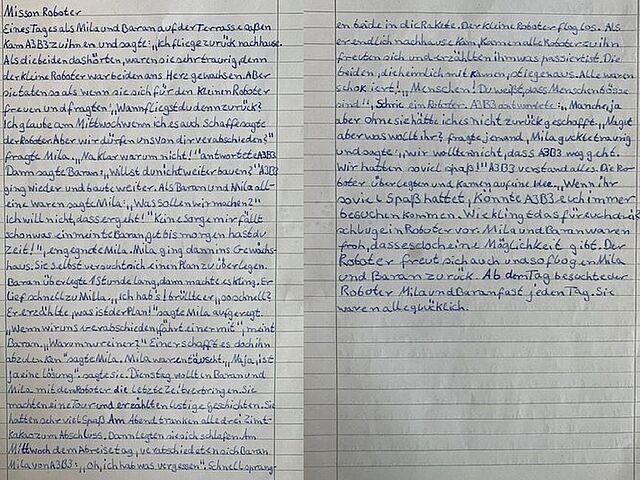 Misson Roboter
Eines Tages als Mila und Baran auf der Terrasse aßen
Kam A3B3 zu ihnen und sagte: „Ich fliege zurück nachhause.
Als die beiden das hörten, waren sie sehr traurig, denn
der kleine Roboter war beiden ans Herz gewachsen. Aber
sie taten so als wenn sie sich für den kleinen Roboter
freuen und fragten: „Wann fliegst du denn zurück?
Ich glaube am Mittwoch wenn ich es auch Schaffe sagte
der Roboter. Aber wir dürfen uns von dir verabschieden?"
fragte Mila. „Na klar warum nicht!" antwortete A3B3
Dann sagte Baran: „Willst du nicht weiter bauen?" A3B3
ging nieder und baute weiter. Als Baran und Mila all-
eine waren sagte Mila: „Was sollen wir machen?"
Ich will nicht, dass er geht!" Keine Sorge mir fällt
schon was ein meinte Baran, gib bis morgen hast du
Zeit!", engegnete Mila. Mila ging dann ins Gewächs-
haus. Sie selbst versucht sich einen Plan zu überlegen.
Baran überlegte 1 Stunde lang, dann machte es kling. Er
lief schnell zu Mila. „Ich hab's! brüllte er „so schnell?
Er erzählte „was ist der Plan!" sagte Mila aufgeregt.
„Wenn wir uns verabschieden „fährt einer mit", meint
Baran. „Warum nur einer? Einer schafft es doch ihn
abzulenken" sagte Mila. Mila war entäuscht. „Naja, ist
ja eine lösung". sagte sie. Dienstag wollten Baran und
Mila mit den Roboter die letzte Zeit verbringen. Sie
machten eine Tour und erzählten lustige geschichten. Sie
hatten sehr viel Spaß. Am Abend tranken alle drei Zimt-
Kakao zum Abschluss. Dann legten sie sich schlafen. Am
Mittwoch dem Abreisetag, verabschiedeten sich Baran
Mila von A3B3: „Oh, ich hab was vergessen". Schnell sprang-
en beide in die Rakete. Der kleine Roboter flog los. Als
er endlich nachhause Kam, Kamen alle Roboter zu ihn
freuten sich und erzählten ihm was passiert ist. Die
beiden, die heimlich mit Kamen, stiegen aus. Alle waren
schokiert! „Menschen! Du weißt, dass Menschen böse
sind!", Schrie ein Roboter. A3B3 antwortete: „Manche, ja
aber ohne sie hätte ich es nicht zurück geschafft. „Na gut
aber was wollt ihr? fragte jemand, Mila guckte traurig
und sagte: „wir wollten nicht, dass A3B3 weg geht.
Wir hatten soviel spaß!" A3B3 verstand alles. Die Ro-
boter überlegten und Kamen auf eine Idee. „Wenn ihr
so viel Spaß hattet, Könnte A3B3 euch immer
besuchen kommen. Wie klingt das für euch da
schlug ein Roboter vor. Mila und Baran waren
froh, dass es doch eine Möglichkeit gibt. Der
Roboter freut sich auch und so flogen Mila
und Baran zurück. Ab dem Tag besuchte der
Roboter Mila und Baran fast jeden Tag. Sie
waren alle glücklich.